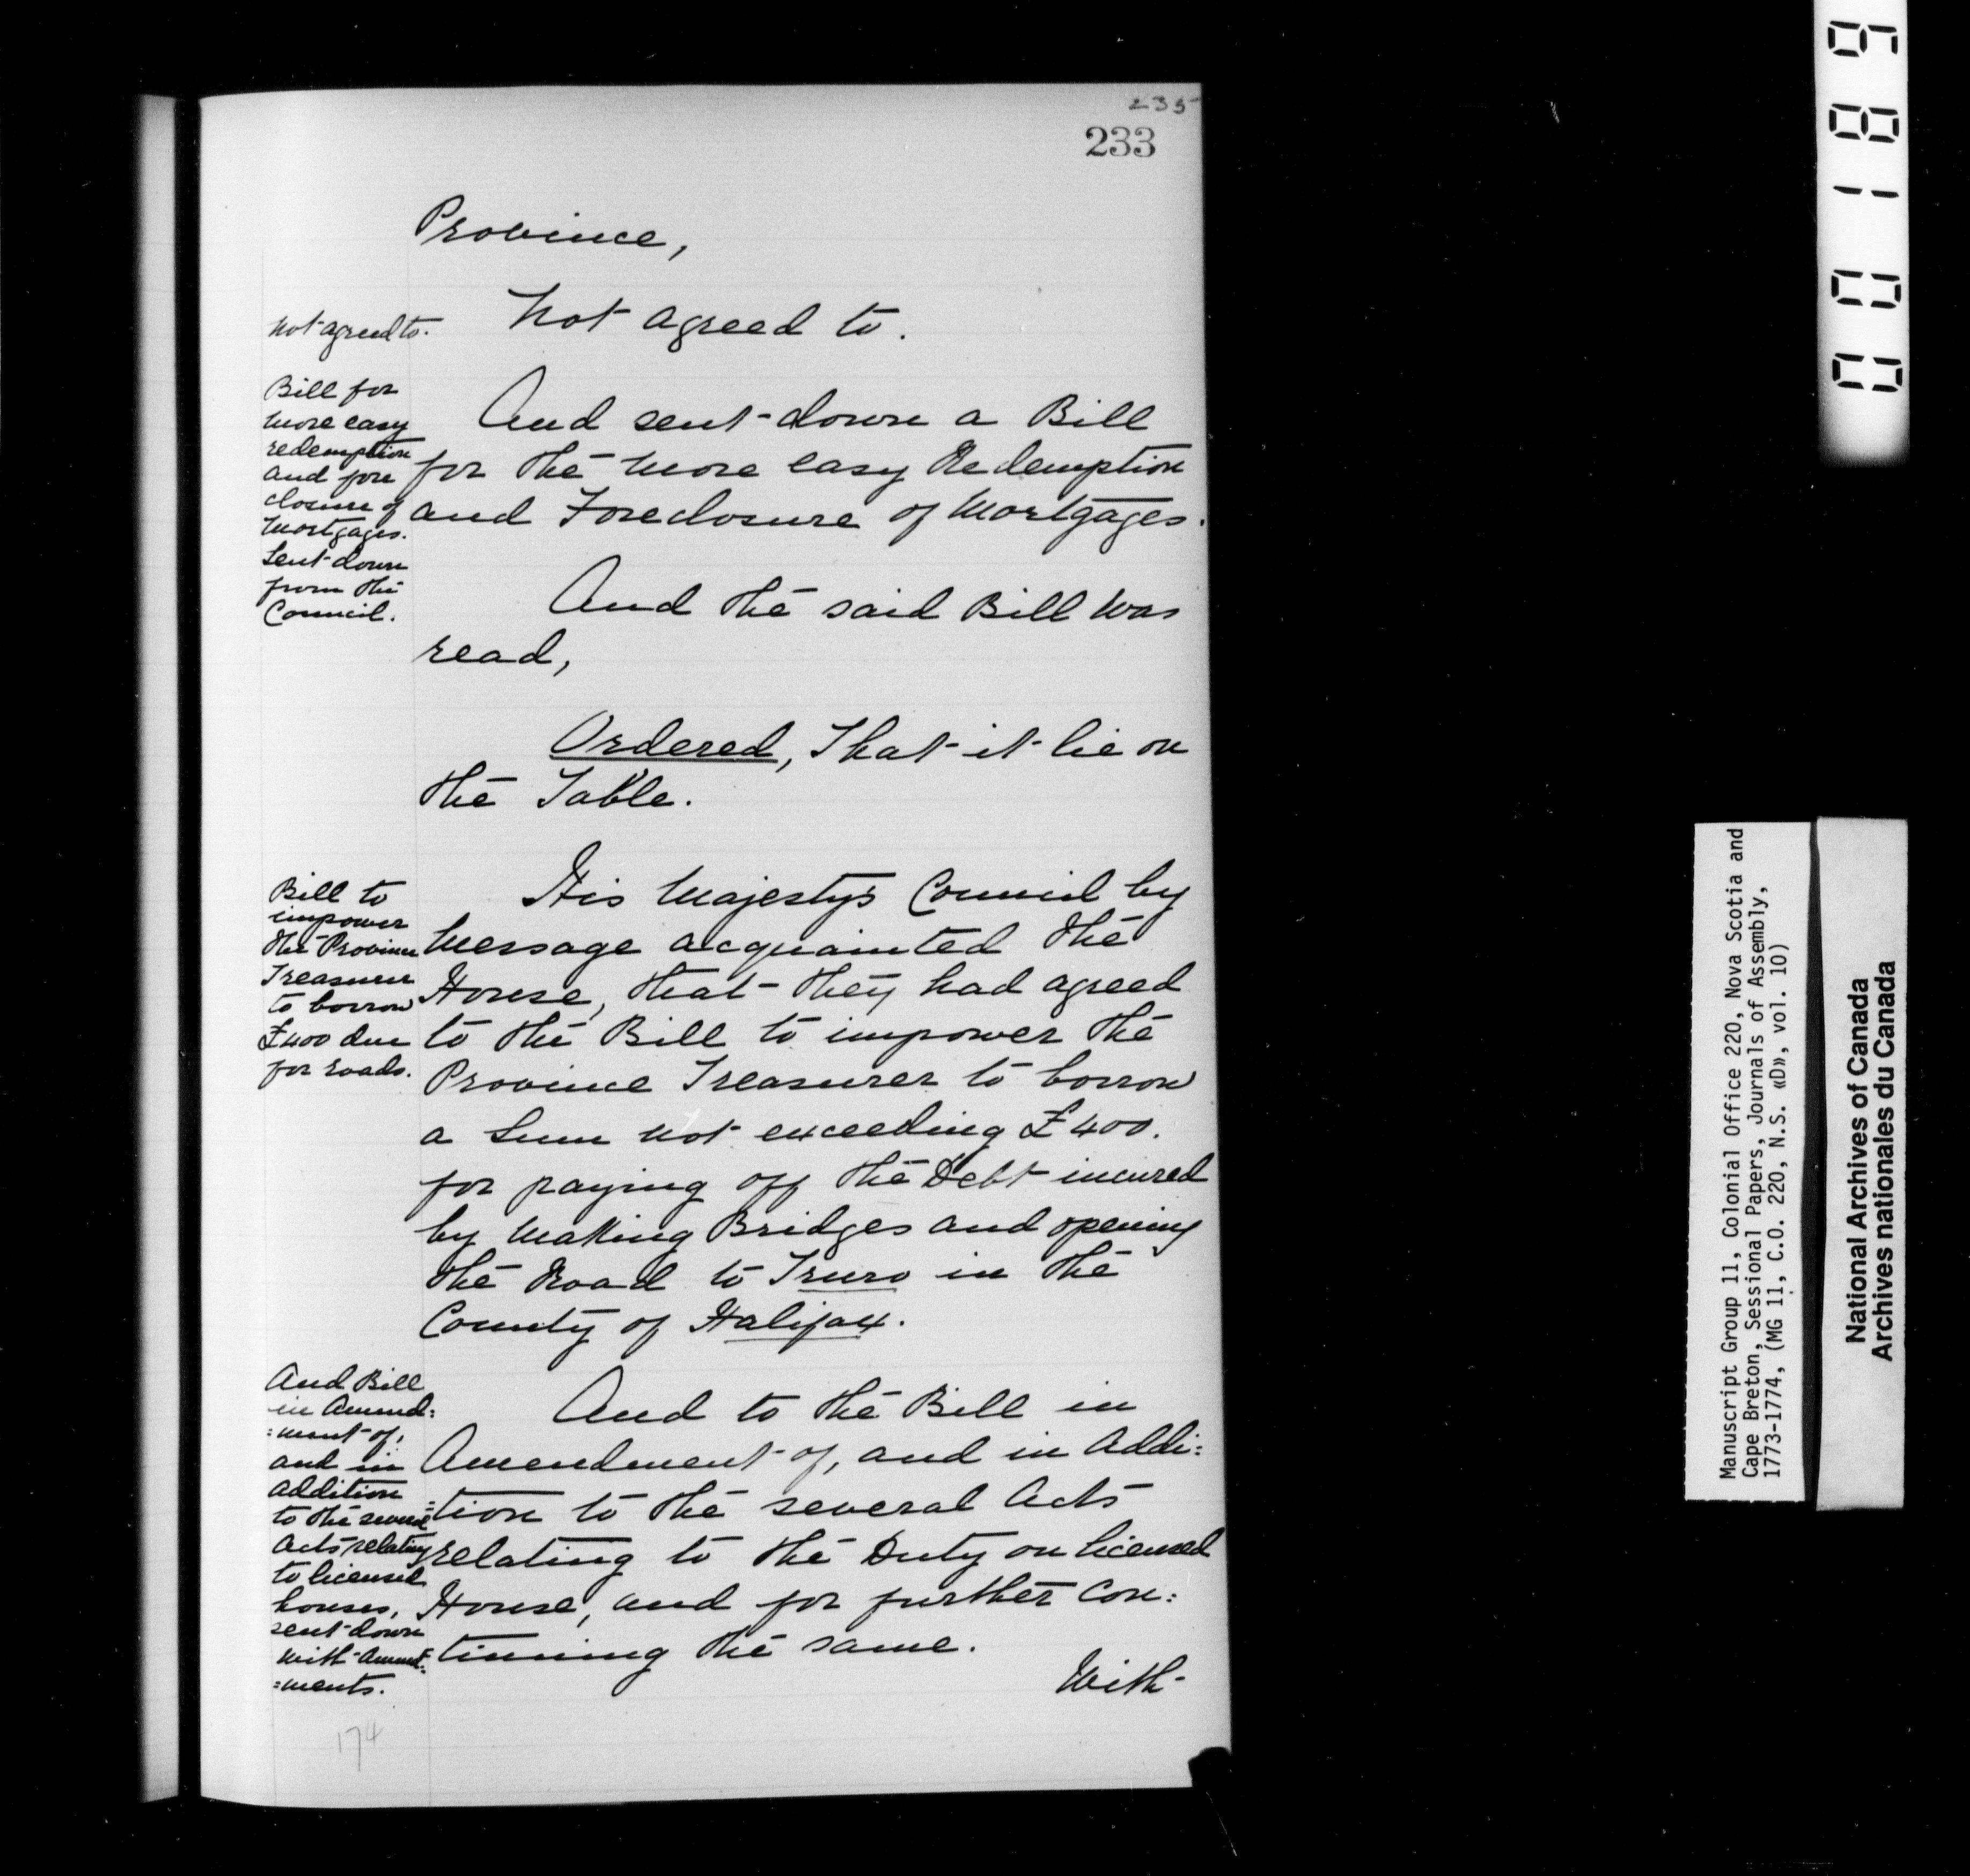 235
233
Province,
not agreed to.
Not agreed to.
Bill for
more easy
redemption
and fore
closure of
Mortgages.
Sent down
from the
Council.
And sent down a Bill
for the more easy Redemption
and Foreclosure of Mortgages.
And the said Bill was
read,
Ordered, That it lie on
the Table.
Bill to
impower
the Province
Treasurer
to borrow
£400 due
for roads.
His Majesty's Council by
Message acquainted the
House, that they had agreed
to the Bill to impower the
Province Treasurer to borrow
a Sum not exceeding £400.
for paying off the Debt incured
by making Bridges and opening
the Road to Truro in the
County of Halifax.
And Bill
in Amend:
:ment of,
and in
addition
to the several
Acts relating
to licensed
houses,
sent down
with Amend:
:ments.
And to the Bill in
Amendment of, and in Addi:
:tion to the several Acts
relating to the Duty on licensed
House, and for further Con:
tinuing the same.
With
174
00189
Manuscript Group 11, Colonial Office 220, Nova Scotia and
Cape Breton, Sessional Papers, Journals of Assembly,
1773-1774, (MG 11, C.O. 220, N.S. «D», vol. 10)
National Archives of Canada
Archives nationales du Canada